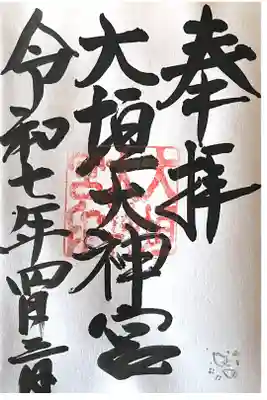 奉拝
大垣大神宮
令和七年四月二日